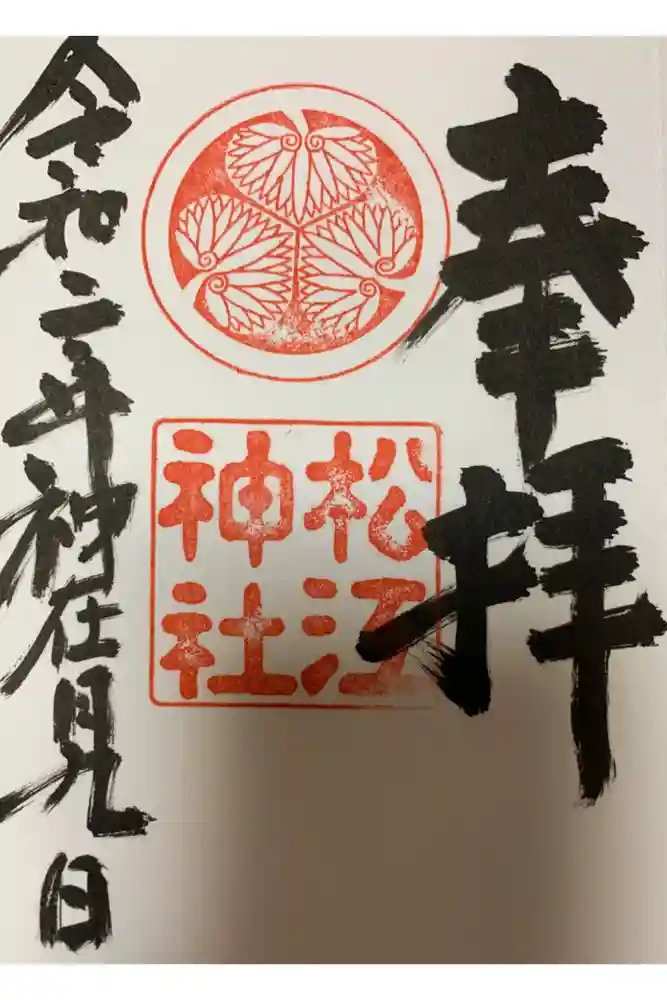 奉拝
松江
神社
令和二年神在月 日